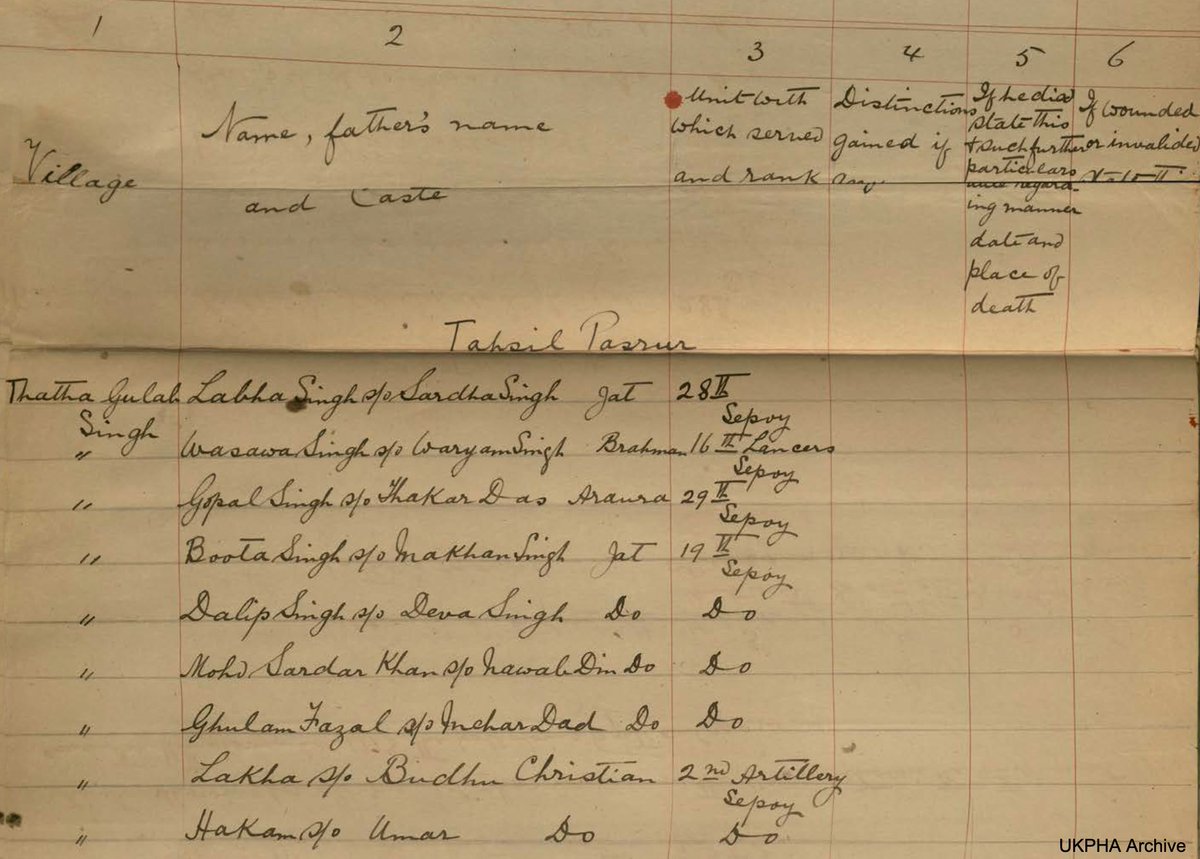 1 2 3 4 5 6
Village
Name, father's name
and Caste
Unit with
which served
and rank
Distinctions
gained if
any
If he died
state this
& such further
particulars
regard-
ing manner
date and
place of
death
If wounded
or invalided
state it
Tahsil Pasrur
Thatha Gulab Labha Singh s/o Sardha Singh Jat 28th
Singh Sepoy
" Wasawa Singh s/o Waryam Singh Brahman 16th Lancers
Sepoy
" Gopal Singh s/o Thakar Das Araura 29th
Sepoy
" Boota Singh s/o Makhan Singh Jat 19th
Sepoy
" Dalip Singh s/o Deva Singh Do Do
" Mohd Sardar Khan s/o Nawab Din Do Do
" Ghulam Fazal s/o Mehar Dad Do Do
" Lakha s/o Budhu Christian 2nd Artillery
Sepoy
" Hakam s/o Umar Do Do
UKPHA Archive